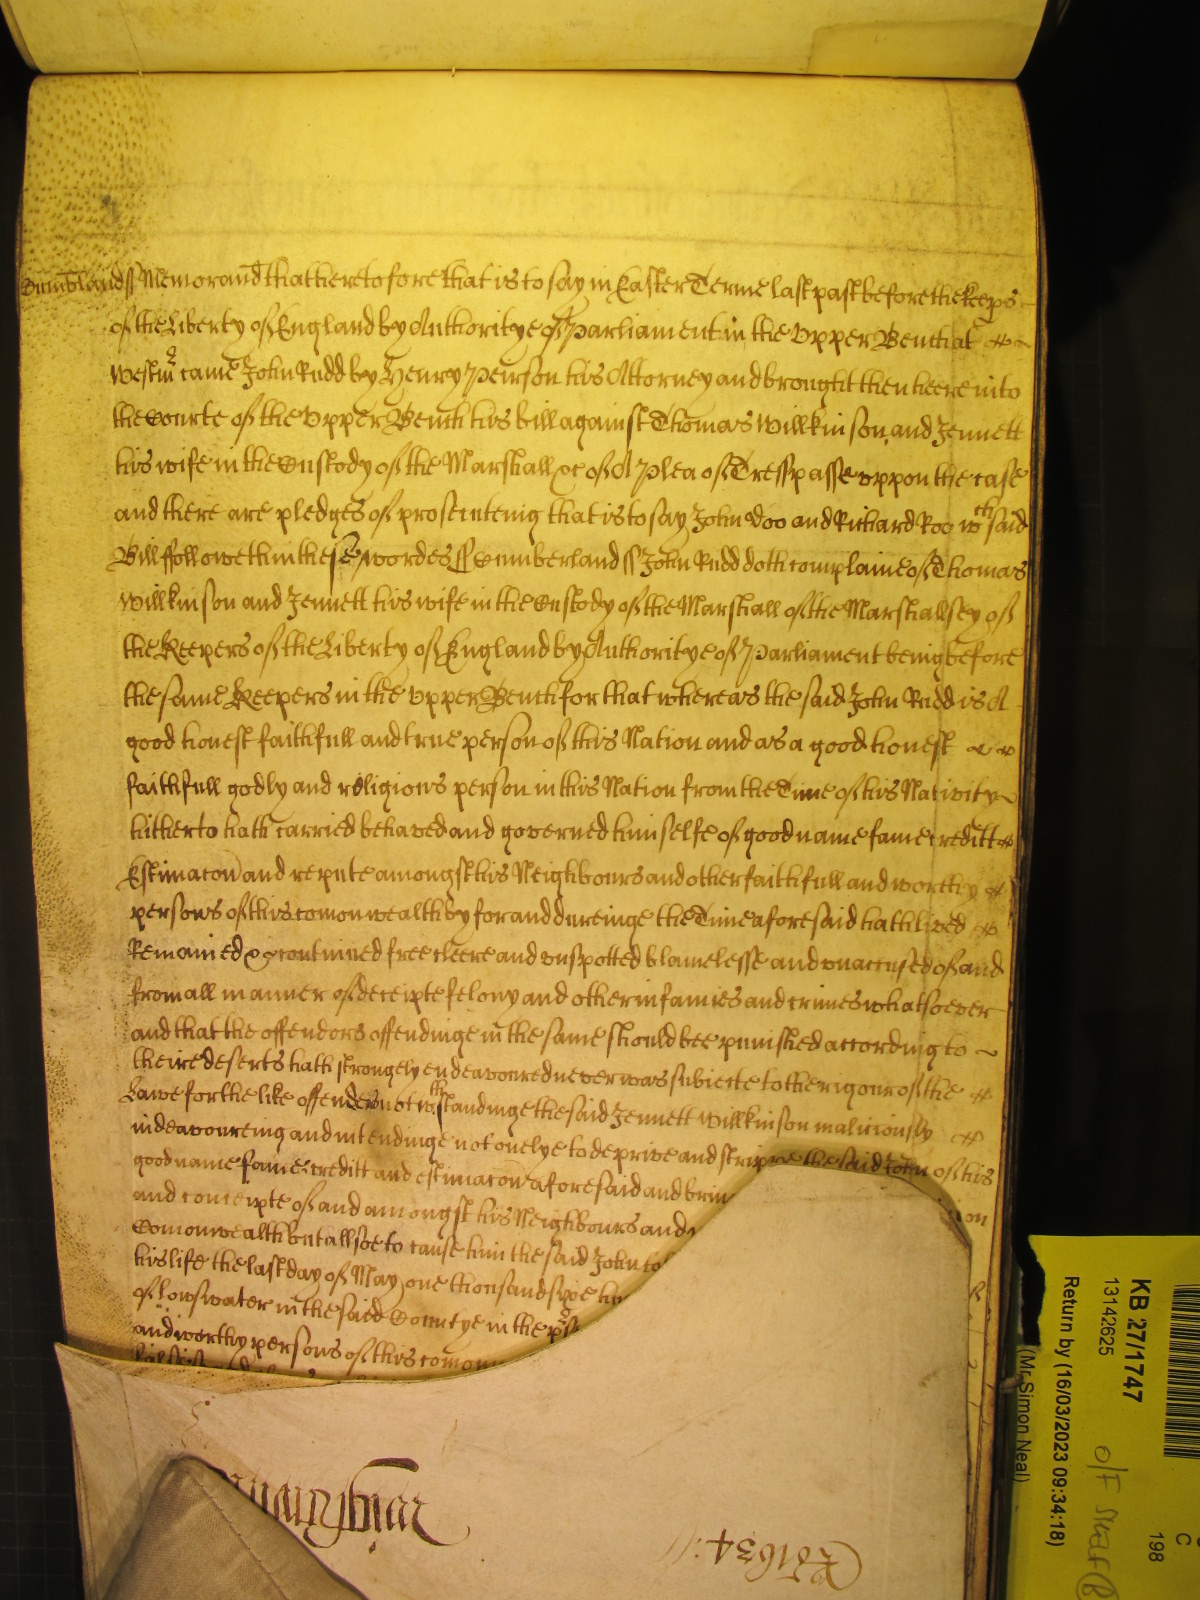 Cumb̄land ss Memorand̄ that heretofore that is to say in Easter Terme last past before the Keeps
of the Liberty of England by Authoritye of Parliament in the Upper Bench at
Westm̄ came John Rudd by Henry Peirson his Attorney and brought then heere into
the Courte of the Upper Bench his bill against Thomas Willkinson and Jennett
his wife in the Custody of the Marshall &c of A Plea of Tresspasse uppon the case
and there are pledges of prosecuteing that is to say John Doo and Richard Roo wch said
Bill followeth in these wordes ss Cumberland ss John Rudd doth complaine of Thomas
Willkinson and Jennett his wife in the Custody of the Marshall of the Marshallsey of
the Keepers of the Liberty of England by Authoritye of Parliament being before
the same Keepers in the Upper Bench for that whereas the said John Rudd is A
good honest faithfull and true person of this Nation and as a good honest
faithfull godly and religious person in this Nation from the Time of his Nativity
hitherto hath carried behaved and governed himselfe of good name fame creditt
Estimacon and repute amongst his Neighbours and other faithfull and worthy
persons of this comonwealth by for and dureinge the Time aforesaid hath lived
Remained & continued free cleere and unspotted blamelesse and unaccused of and
from all manner of deceipte felony and other infamies and crimes whatsoever
and that the offendors offendinge in the same should bee punished according to
theire deserts hath strongely endeavoured never was subiecte to the rigour of the
Lawe for the like offences notwthstandinge the said Jennett Willkinson maliciously
indeavoureing and intendinge not onelye to deprive and strippe the said John of his
good name fame creditt and estimacon aforesaid and brin
and conceipte of and amongst his Neighbours and
Comonwealth but allsoe to cause him the said John to
his life the last day of May one thousand sixe hu
of Loweswater in the said Countye in the p
and worthy persons of this comon
Ro 1634
KB 27/1747
13142625
Return by (16/03/2023 09:34:18)
(Mr Simon Neal)
198
C